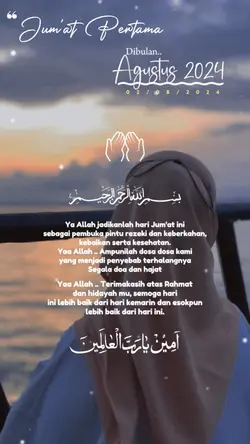 “ Jum'at Pertama
Dibulan..
Agustus 2024
02/08/2024
بسم الله الرحمن الرحيم
Ya Allah jadikanlah hari Jum'at ini
sebagai pembuka pintu rezeki dan keberkahan,
kebaikan serta kesehatan.
Yaa Allah .. Ampunilah dosa dosa kami
yang menjadi penyebab terhalangnya
Segala doa dan hajat
Yaa Allah .. Terimakasih atas Rahmat
dan hidayah mu, semoga hari
ini lebih baik dari hari kemarin dan esokpun
lebih baik dari hari ini.
آمِيْنْ يَارَبَّ الْعَالَمِيْنَ